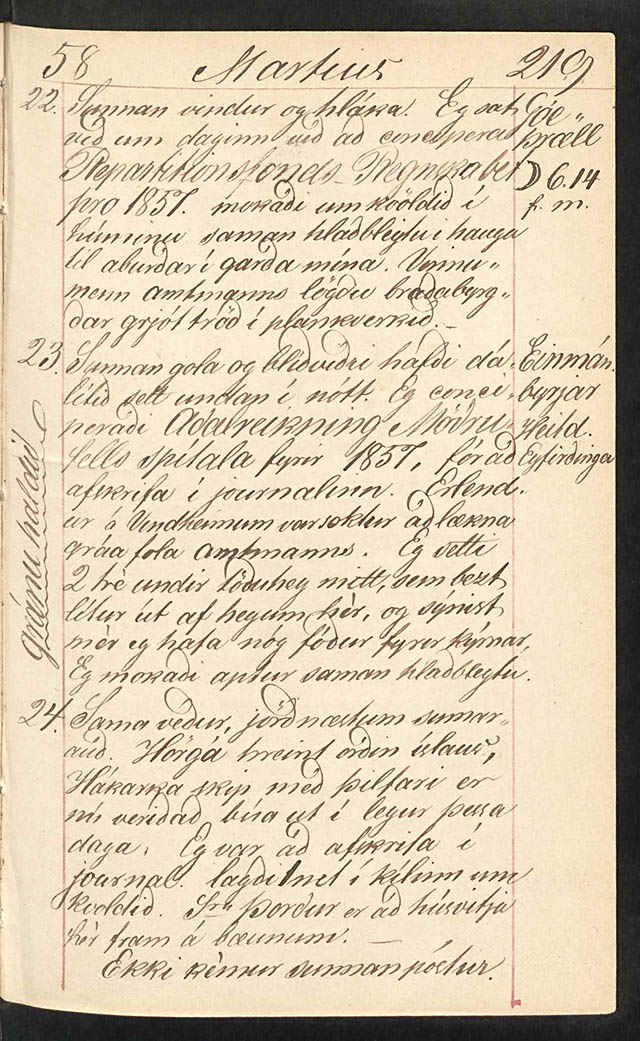 58 Martius 219
22. Sunnan vindur og hláka. Eg sat
við um daginn við að concipera
Repartitionsfonds-Regnskabet
pro 1857. mokaði um kvöldið í
húminu saman hladbleytu i hauga
til aburðar í garða mína. Vinnu„
menn amtmanns lögdu bradabyrg„
ðar grjót tröð í plankverkið. –
Góe„
þræll
☽ 6.14
f. m.
23. Sunnan gola og bliðviðri hafði dá„
litið sett undan í nótt. Eg conci„
peraði Aðalreikning Möðru„
fells spitala fyrir 1857, fór að
afskrifa í journalinn. Erlend„
ur á Vindheimum var sóktur að lækna
gráa fola amtmanns. Eg setti
2 tré undir töðuhey mitt, sem bezt
litur út af heyum hér, og sýnist
mér eg hafa nóg fóður fyrir kýrnar,
Eg mokaði aptur saman hladbleytu.
Einmán.
byrjar
Heitd.
Eyfirðinga
gránu haldið
24. Sama veður, jörð næstum sumar„
auð. Hörgá hreint orðin íslaus,
Hákarla skip með þilfari er
nú verið að búa út í legur þessa
daga. Eg var að afskrifa í
journal. lagði 1 net í kilinn um
kvoldið. Sra Þorður er að húsvitja
hér fram á bæunum. –
Ekki kémur sunnanpóstur.